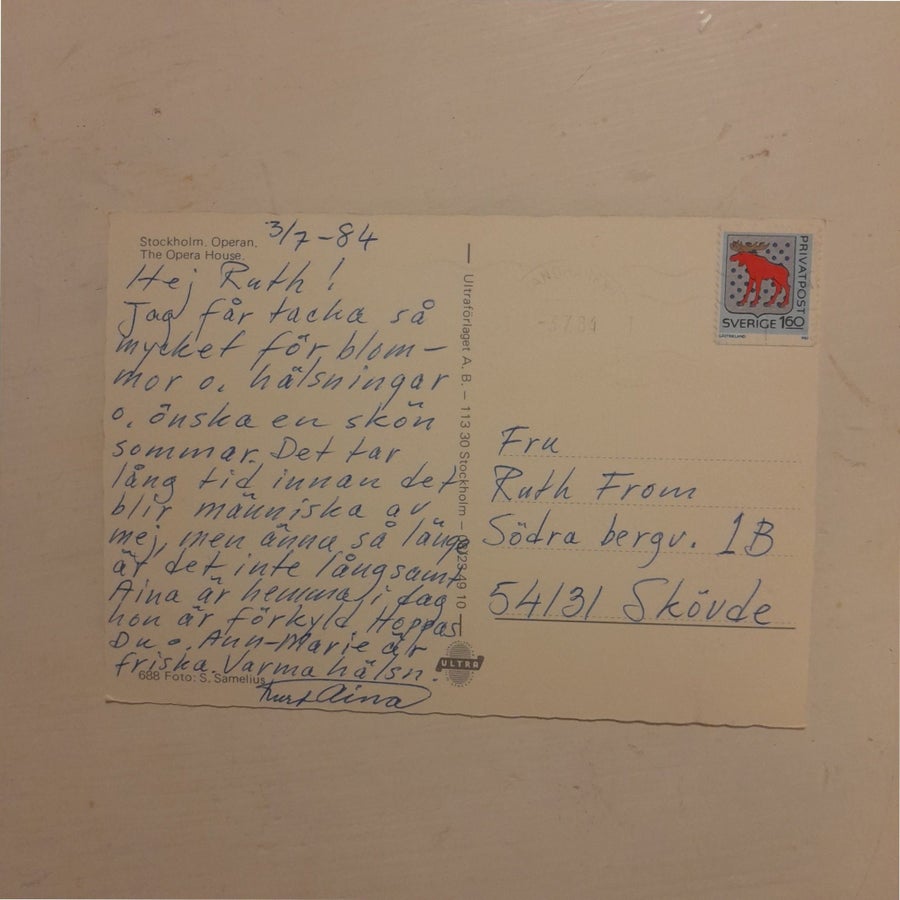 3/7-84
Stockholm. Operan.
The Opera House.
Hej Ruth!
Jag får tacka så
mycket för blom-
mor o. hälsningar
o. önska en skön
sommar. Det tar
lång tid innan det
blir människa av
mej, men änna så länge
är det inte långsamt
Aina är hemma i dag
hon är förkyld Hoppas
Du o. Ann-Marie är
friska. Varma hälsn.
688 Foto: S. Samelius
Kurt Aina
Ultraförlaget A.B. – 113 30 Stockholm – 08/23 49 10
ULTRA
PRIVATPOST
SVERIGE 160
-3.7.84
Fru
Ruth From
Södra bergv. 1B
54131 Skövde